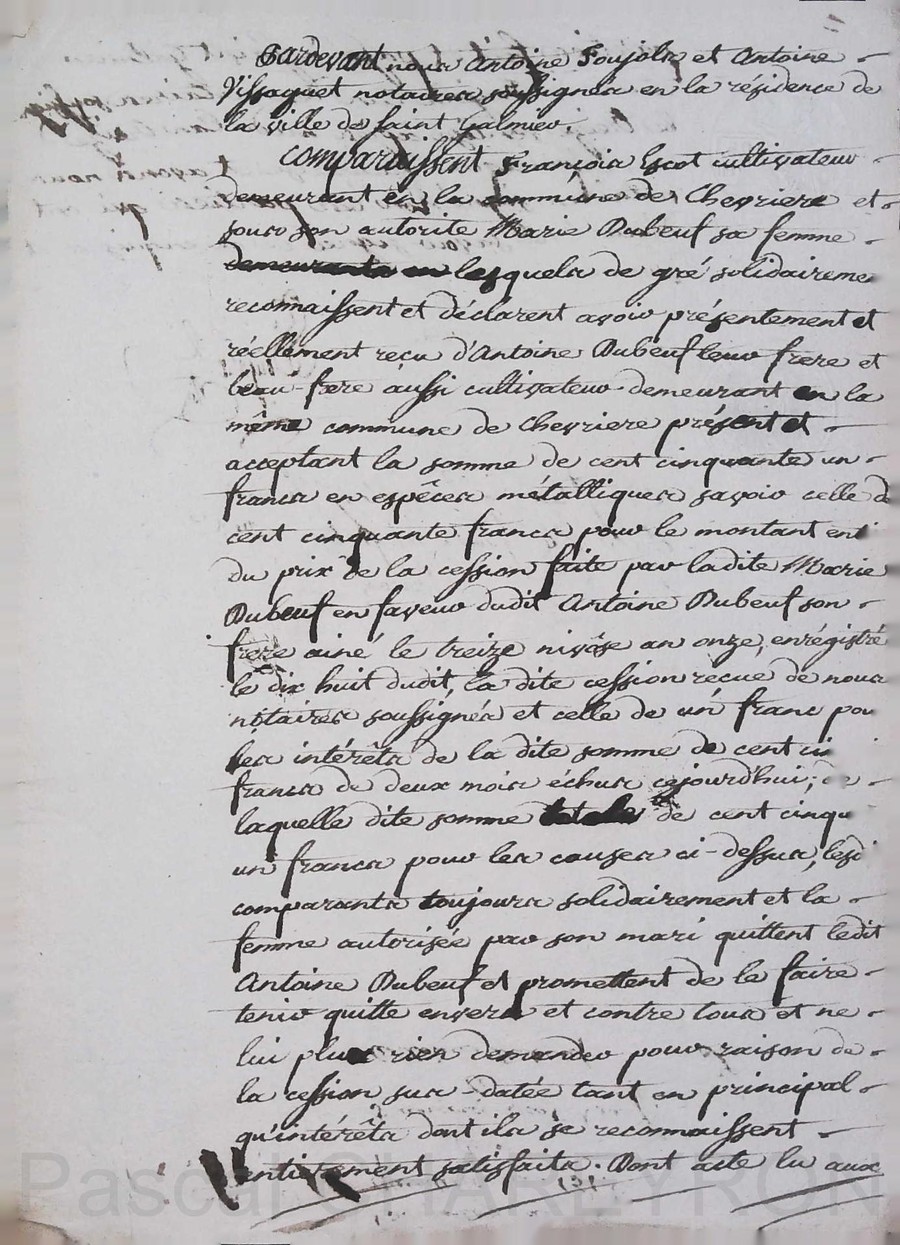 Pardevant nous Antoine Poujols et Antoine
Vissaguet notaires soussignés en la résidence de
la ville de Saint Galmier.
Comparaissent François Escot cultivateur
demeurant en la commune de Chevriere et
sous son autorité Marie Dubeuf sa femme
demeurants en lesquels de gré solidaireme
reconnaissent et déclarent avoir présentement et
réellement recu d'Antoine Dubeuf leur frere et
beau-frere aussi cultivateur demeurant en la
même commune de Chevriere présent et
acceptant la somme de cent cinquante un
francs en espêces métalliques savoir celle d
cent cinquante francs pour le montant enti
du prix de la cession faite par ladite Marie
Dubeuf en faveur dudit Antoine Dubeuf son
frere ainé le treize nivôse an onze, enrégistré
le dix huit dudit, la dite cession recue de nous
notaires soussignés et celle de un franc pou
les intérêts de la dite somme de cent ci
francs de deux mois échus cejourd'hui; de
laquelle dite somme totale de cent cinqu
un francs pour les causes ci-dessus, lesd
comparants toujours solidairement et la
femme autorisée par son mari quittent ledit
Antoine Dubeuf et promettent de le faire
tenir quitte envers et contre tous et ne
lui plus rien demander pour raison de
la cession sus-datée tant en principal
qu'intérêts dont ils se reconnaissent
entierement satisfaits. Dont acte lu aux
Pascal CHAREYRON